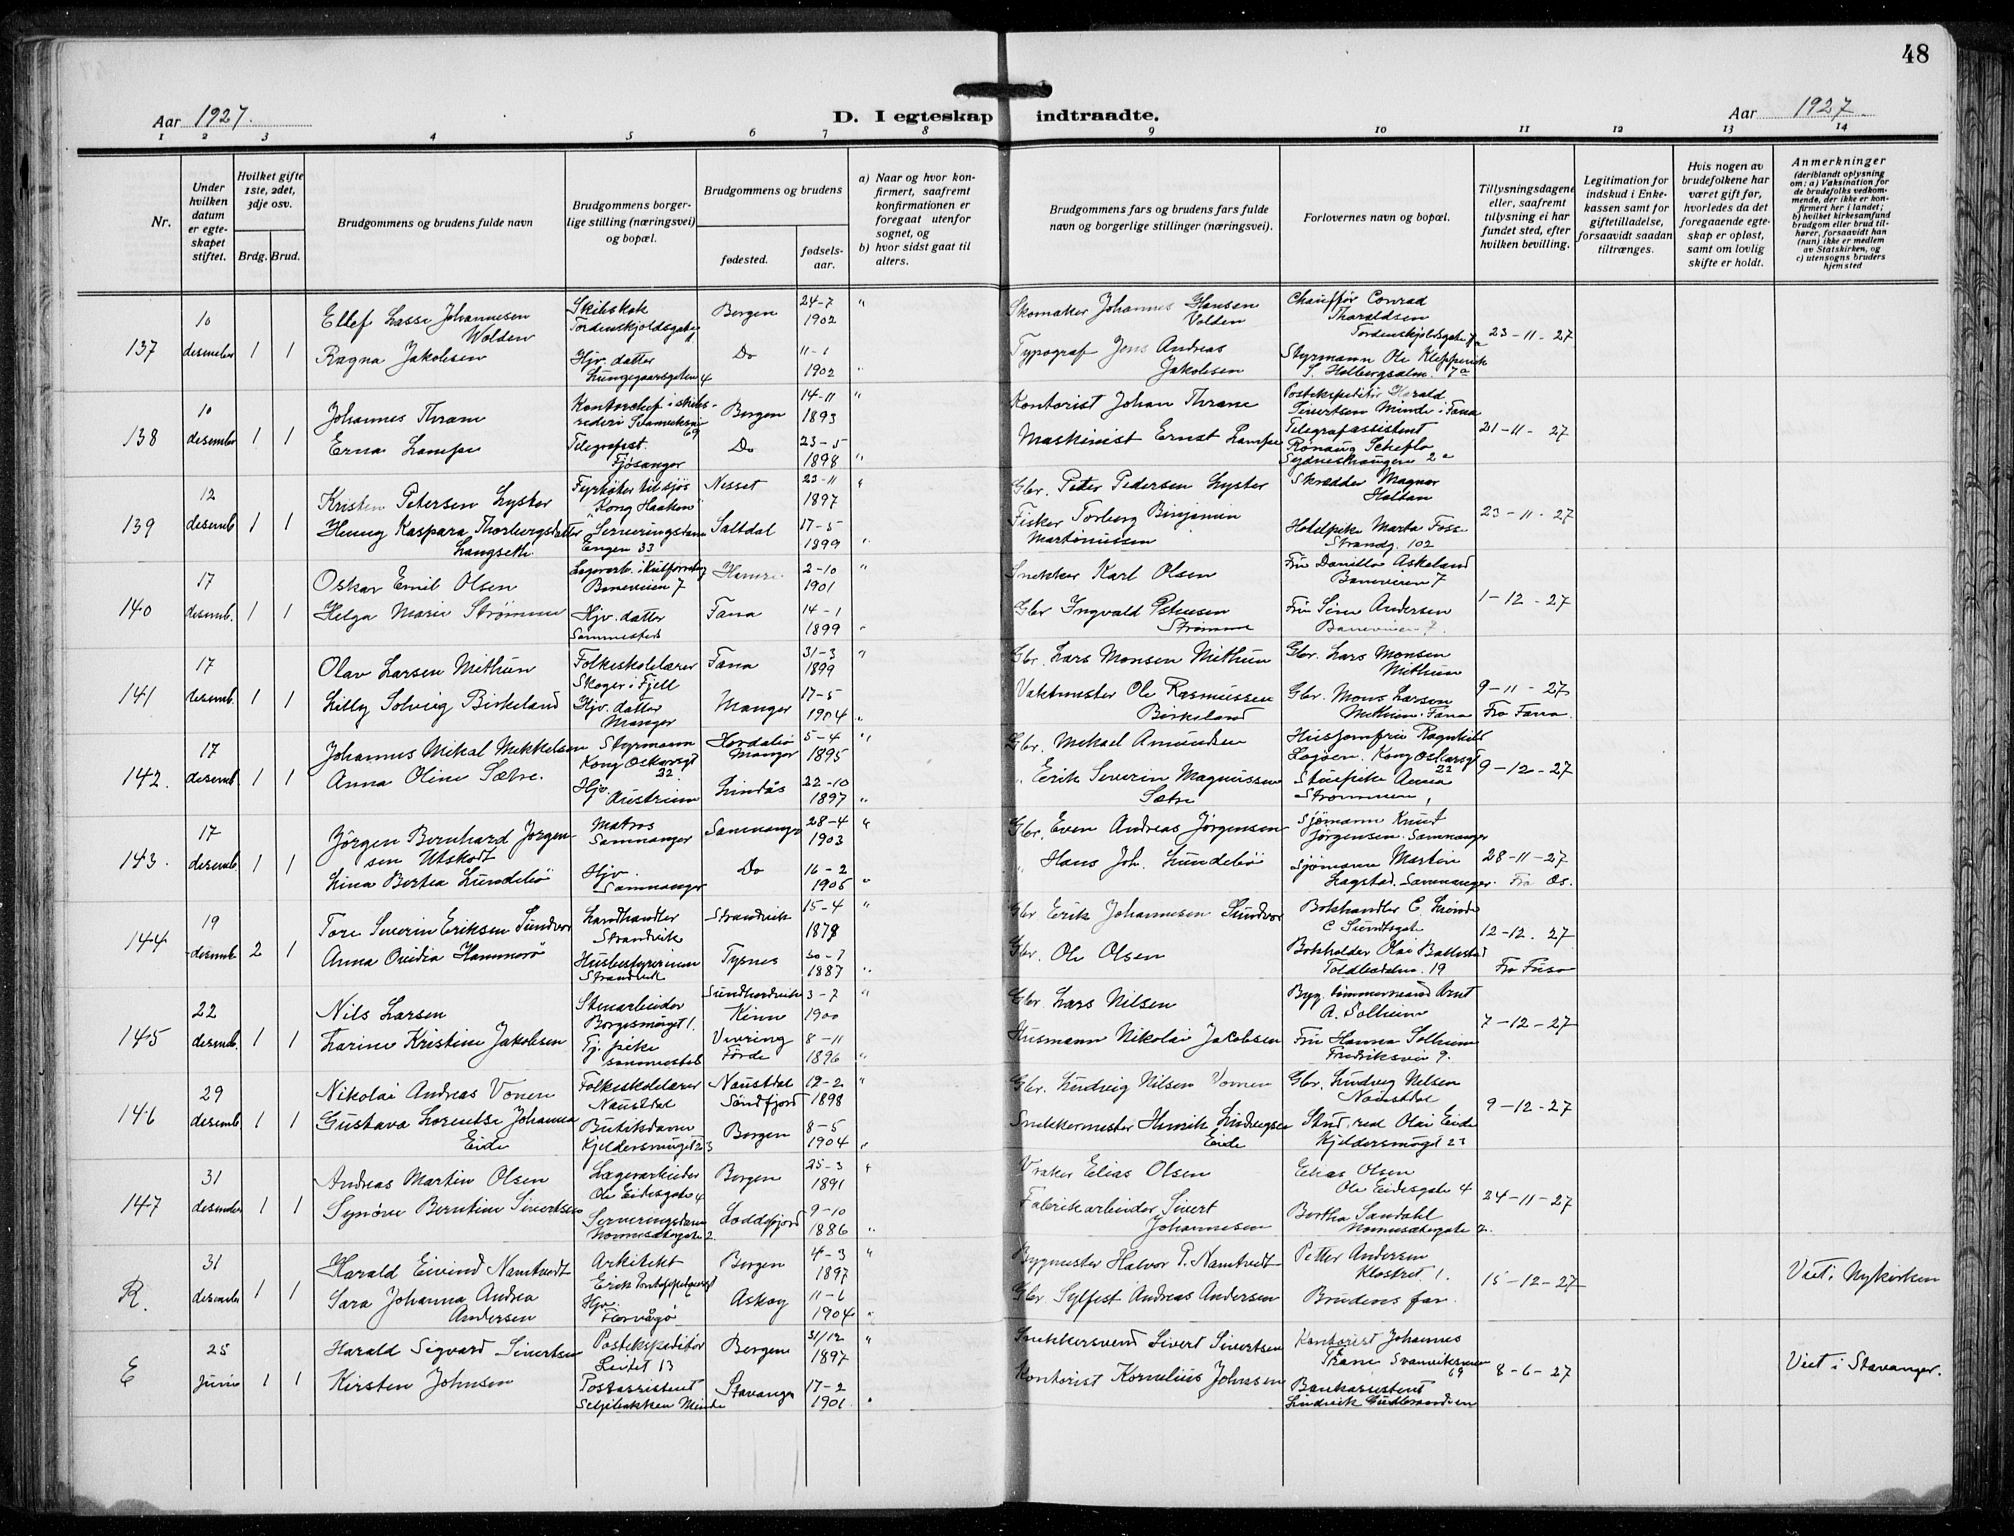 48
Aar 1927.
D. I egteskap indtraadte.
Aar 1927
1 2 3 4 5 6 7 8 9 10 11 12 13 14
Nr.
Under hvilken datum er egteskapet stiftet.
Hvilket gifte 1ste, 2det, 3dje osv.
Brdg. Brud.
Brudgommens og brudens fulde navn
Brudgommens borgerlige stilling (næringsvei) og bopæl.
Brudgommens og brudens
fødested.
fødselsaar.
a) Naar og hvor konfirmert, saafremt konfirmationen er foregaat utenfor sognet, og
b) hvor sidst gaat til alters.
Brudgommens fars og brudens fars fulde navn og borgerlige stillinger (næringsvei).
Forlovernes navn og bopæl.
Tillysningsdagene eller, saafremt tillysning ei har fundet sted, efter hvilken bevilling.
Legitimation for indskud i Enkekassen samt for giftetilladelse, forsaavidt saadan tiltrænges.
Hvis nogen av brudefolkene har været gift før, hvorledes da det foregaaende egteskap er opløst, samt om lovlig skifte er holdt.
Anmerkninger
(deriblandt oplysning om: a) Vaksination for de brudefolks vedkommende, der ikke er konfirmert her i landet; b) hvilket kirkesamfund brudgom eller brud tilhører, forsaavidt han (hun) ikke er medlem av Statskirken, og c) utensogns bruders hjemsted
137 10 desember 1 1
Ellef Lasse Johannesen Wolden
Tordenskjoldsgate
Bergen 24-7 1902 "
Skomaker Johannes Hansen Volden
Chauffør Conrad Tharaldsen
Tordenskjoldsgate 7a
23-11-27
Ragna Jakobsen
Hjv. datter
Lungegaarsgaten 4
Do 11-1 1902 "
Typograf Jens Andreas Jakobsen
Styrmann Ole
138 10 desember 1 1
Johannes Thrane
Kontorchef i skibsrederi
69
Bergen 14-11 1893 "
Kontorist Johan Thrane
Postekspeditør Harald Sivertsen Minde i Fana
21-11-27
Erna Lampe
Telegrafist. Fjøsanger
Do 23-5 1898 "
Maskinist Ernst Lampe
Telegrafassistent
139 12 desemb 1 1
Kristen Petersen Lyster
Fyrbøter tilsjøs
"Kong Haakon"
Nesset 23-11 1897 "
Gbr. Peter Pedersen Lyster
Skrædder Magnor Holtan
23-11-27
Kaspara Thorbergsdatter Langseth
Serveringsdame
Engen 33
Saltdal 17-5 1899 "
Fisker Torberg Binjamin Martinussen
Hotelpike Marta Foss
Strandg. 102
140 17 desemb. 1 1
Oskar Emil Olsen
Baneveien 7
2-10 1901 "
Snekker Karl Olsen
Askeland
Baneveien 7
1-12-27
Helga Marie Strømme
Hjv. datter
Sammested
Fana 14-1 1899 "
Gbr Ingvald Strømme
Fru Sina Andersen
Baneveien 7.
141 17 desemb. 1 1
Olav Larsen Mithun
Folkeskolelærer
Skoger i Fjell
Fana 31-3 1899 "
Gbr. Lars Monsen Mithun
Gbr. Lars Monsen Mithun
9-11-27
Fra Fana.
Lilly Solveig Birkeland
Hjv. datter
Manger
Manger 17-5 1904 "
Vaktmester Ole Rasmussen Birkeland
Gbr. Mons Larsen Mithun. Fana
142 17 desemb. 1 1
Johannes Mikal Mikkelsen
Styrmann
Kong Oskarsgt 22.
Manger 5-4 1895 "
Gbr. Mikael Amundsen
Husjomfru Ragnhild
Kong Oskarsgt 22
9-12-27
Anna Oline Sætre.
Hjv.
Austrheim
Lindås 22-10 1897 "
" Erik Severin Magnussen Sætre
Stuepike Anna Strømmen
143. 17 desemb. 1 1
Jørgen Bernhard Jørgensen Utskodt
Matros
Samnanger
Samnanger 28-4 1903 "
Gbr. Even Andreas Jørgensen
Sjømann Knut Jørgensen. Samnanger
28-11-27
Fra Os.
Lina Bertea Lundebø
Hjv.
Samnanger
Do 16-2 1905 "
" Hans Joh. Lundebø
Sjømann Martin Lagstad. Samnanger.
144 19 desemb. 2 1
Tore Severin Eriksen Sundvor
Landhandler
Strandvik
Strandvik 15-4 1878 "
Gbr Erik Johannesen Sundvor
Bokhandler C.
C Sundtsgt
12-12. 27
Fra Fusa
Anna Ovidia Hammerø
Husbestyrerinne
Strandvik
Tysnes 1887 "
Gbr. Ole Olsen
Bokholder Olai
19
145 22 desemb. 1 1
Nils Larsen
Stenarbeider
1.
Kinn 3-7 1900 "
Gbr Lars Nilsen
Byg. tømmermand Arnt A. Solheim
7-12-27
Karine Kristine Jakobsen
Tj. pike
sammested
Vevring
Førde 8-11 1896 "
Husmann Nikolai Jacobsen
Fru Hanna Solheim
9.
146 29 desemb. 1 1
Nikolai Andreas Vonen
Folkeskolelærer
Naustdal
Naustdal
Søndfjord 12-2 1898 "
Gbr. Ludvig Nilsen Vonen
Gbr. Ludvig Nilsen Naustdal
9-12-27
Gustava Lorentse Johanna Eide
Butiksdame
Kjeldersmuget 23
Bergen 8-5 1904 "
Snekkermester Henrik Eide
Stud. real Olai Eide
Kjeldersmugt 23
147 31 desember 1 1
Andreas Martin Olsen
Lagerarbeider
Ole Eidesgate 4
Bergen 25-3 1891 "
Vraker Elias Olsen
Elias Olsen
Ole Eidesgate 4
24-11-27
Synøve Berntine Sivertsen
Serveringsdame
Loddefjord 9-10 1886 "
Fabrikarbeider Sivert Johannesen
Bertha Sandahl
2.
R. 31 desember 1 1
Harald Eivind Namtvedt
Arkitekt
Bergen 4-3 1897 "
Bygmester Halvor P. Namtvedt
Petter Andersen
Klostret 1.
15-12-27
Viet i Nykirken
Sara Johanna Andrea Andersen
Hjv.
Florvågø
Askøy 11-6 1904 "
Gbr Sylfest Andreas Andersen
Brudens far.
E 25 Juni 1 1
Harald Sigvard Sivertsen
Postekspeditør
Leitet 13
Bergen 31/12 1897 "
Snekkersvend Sivert Sivertsen
Kontorist Johannes Thrane
69
8-6-27
Viet i Stavanger.
Kirsten Johnsen
Postassistent
Seljebakken Minde
Stavanger 17-2 1901 "
Kontorist Kornelius Johnsen
Bankassistent